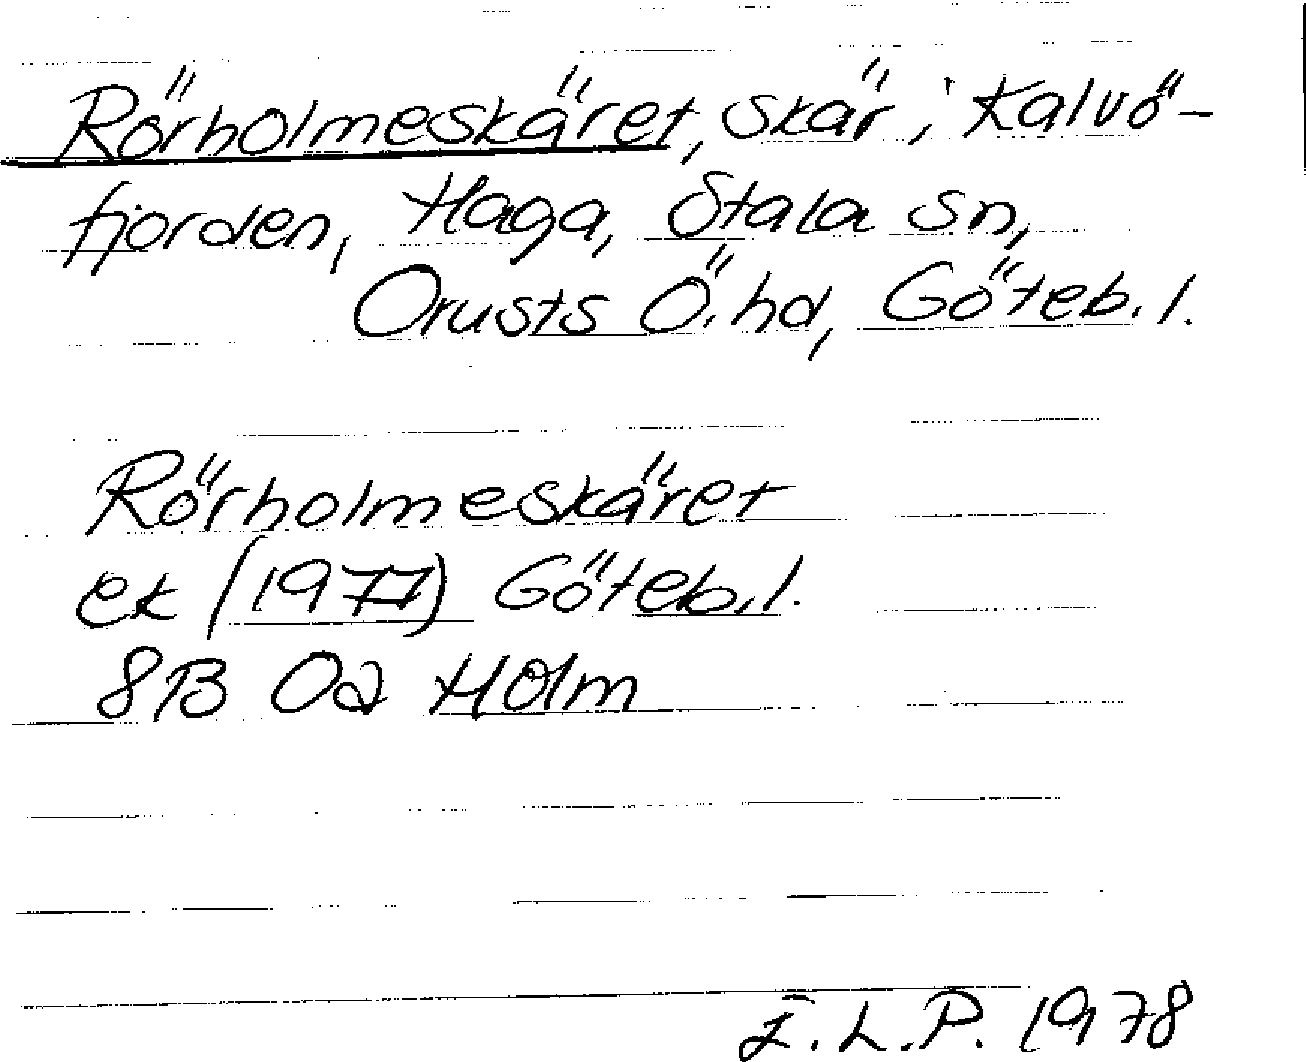 Rörholmeskäret, skär, Kalvö-
fjorden, Haga, Stala sn,
Orusts Ö. hd, Göteb. l.
Rörholmeskäret
ek (1977) Göteb. l.
8B 0a Holm
I.L.P. 1978